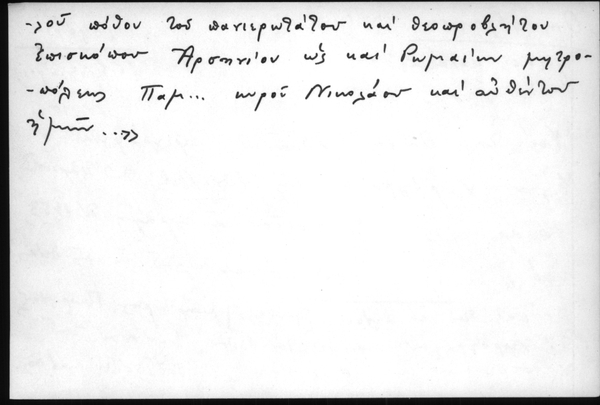 -λοῦ πόθου τοῦ πανιερωτάτου καὶ θεοπροβλήτου
ἐπισκόπου Ἀρσενίου ὡς καὶ Ῥωμαίων μητρο-
-πόλεως Παμ... κυροῦ Νικολάου καὶ αὐθέντου
ἡμῶν...»